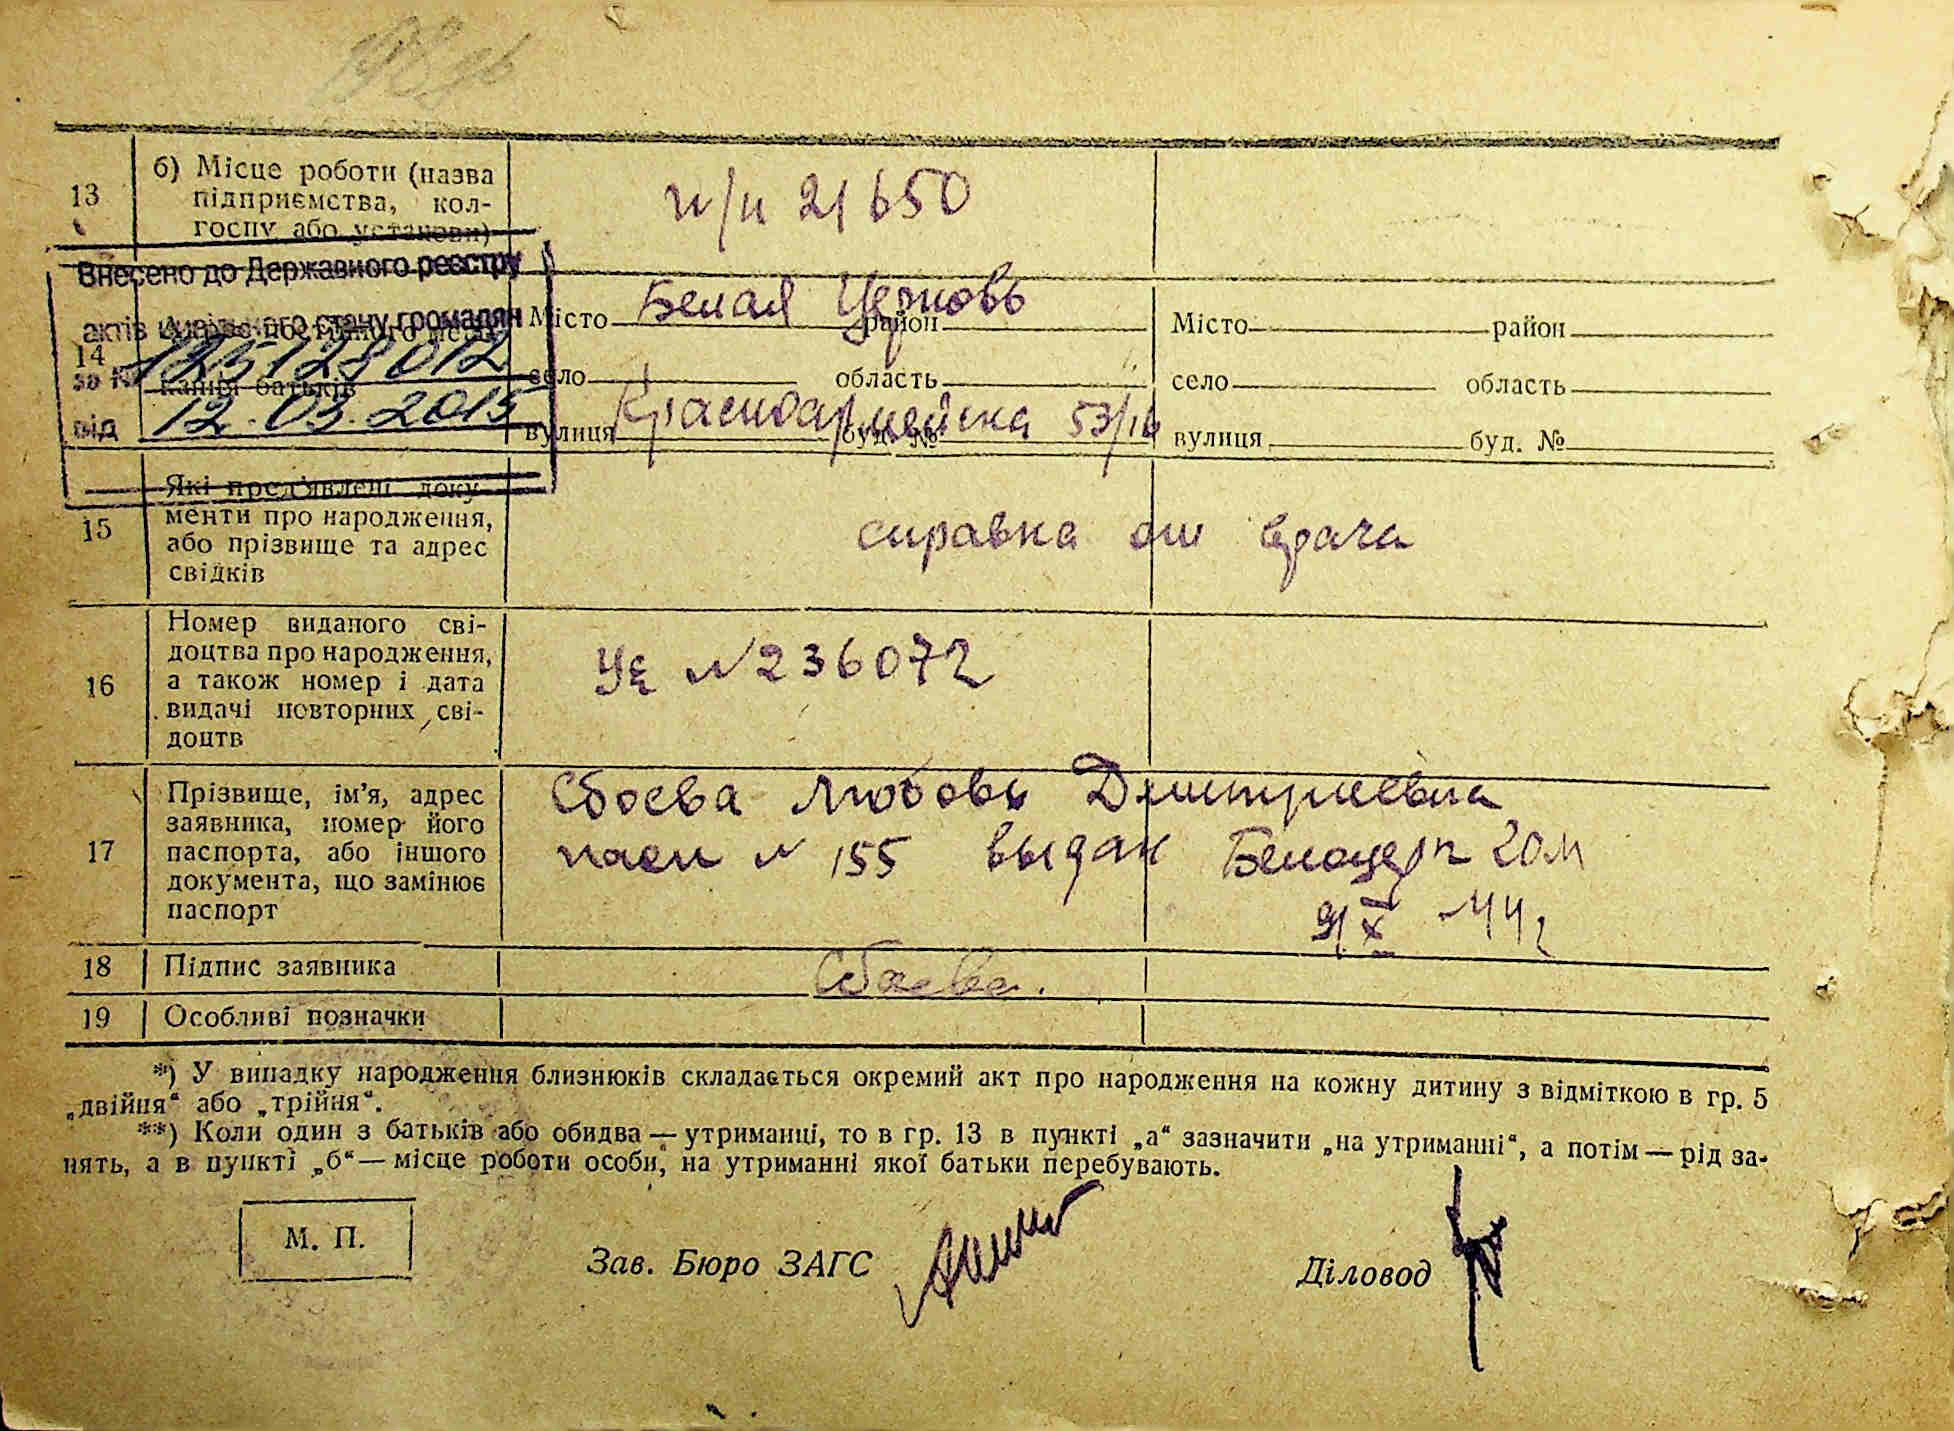 13
б) Місце роботи (назва
підприємства, кол-
госпу або установи)
п/п 21650
Внесено до Державного реєстру
актів цивільного стану громадян
за № 125128012
від 12.03.2015
14
канця батьків
Місто Белая Церковь район
село область
вулиця Красноармейска буд. № 53/16
Місто район
село область
вулиця буд. №
15
Які пред'явлені доку-
менти про народження,
або прізвище та адрес
свідків
справка от врача
16
Номер виданого сві-
доцтва про народження,
а також номер і дата
видачі повторних сві-
доцтв
№ 236072
17
Прізвище, ім'я, адрес
заявника, номер його
паспорта, або іншого
документа, що замінює
паспорт
Сбоева Любовь Дмитриевна
пасп № 155 выдан Белоцерк ГОМ
9/X -44г
18
Підпис заявника
Сбоева.
19
Особливі позначки
*) У випадку народження близнюків складається окремий акт про народження на кожну дитину з відміткою в гр. 5
„двійня“ або „трійня“.
**) Коли один з батьків або обидва — утриманці, то в гр. 13 в пункті „а“ зазначити „на утриманні“, а потім — рід за-
нять, а в пункті „б“ — місце роботи особи, на утриманні якої батьки перебувають.
М. П.
Зав. Бюро ЗАГС
Діловод